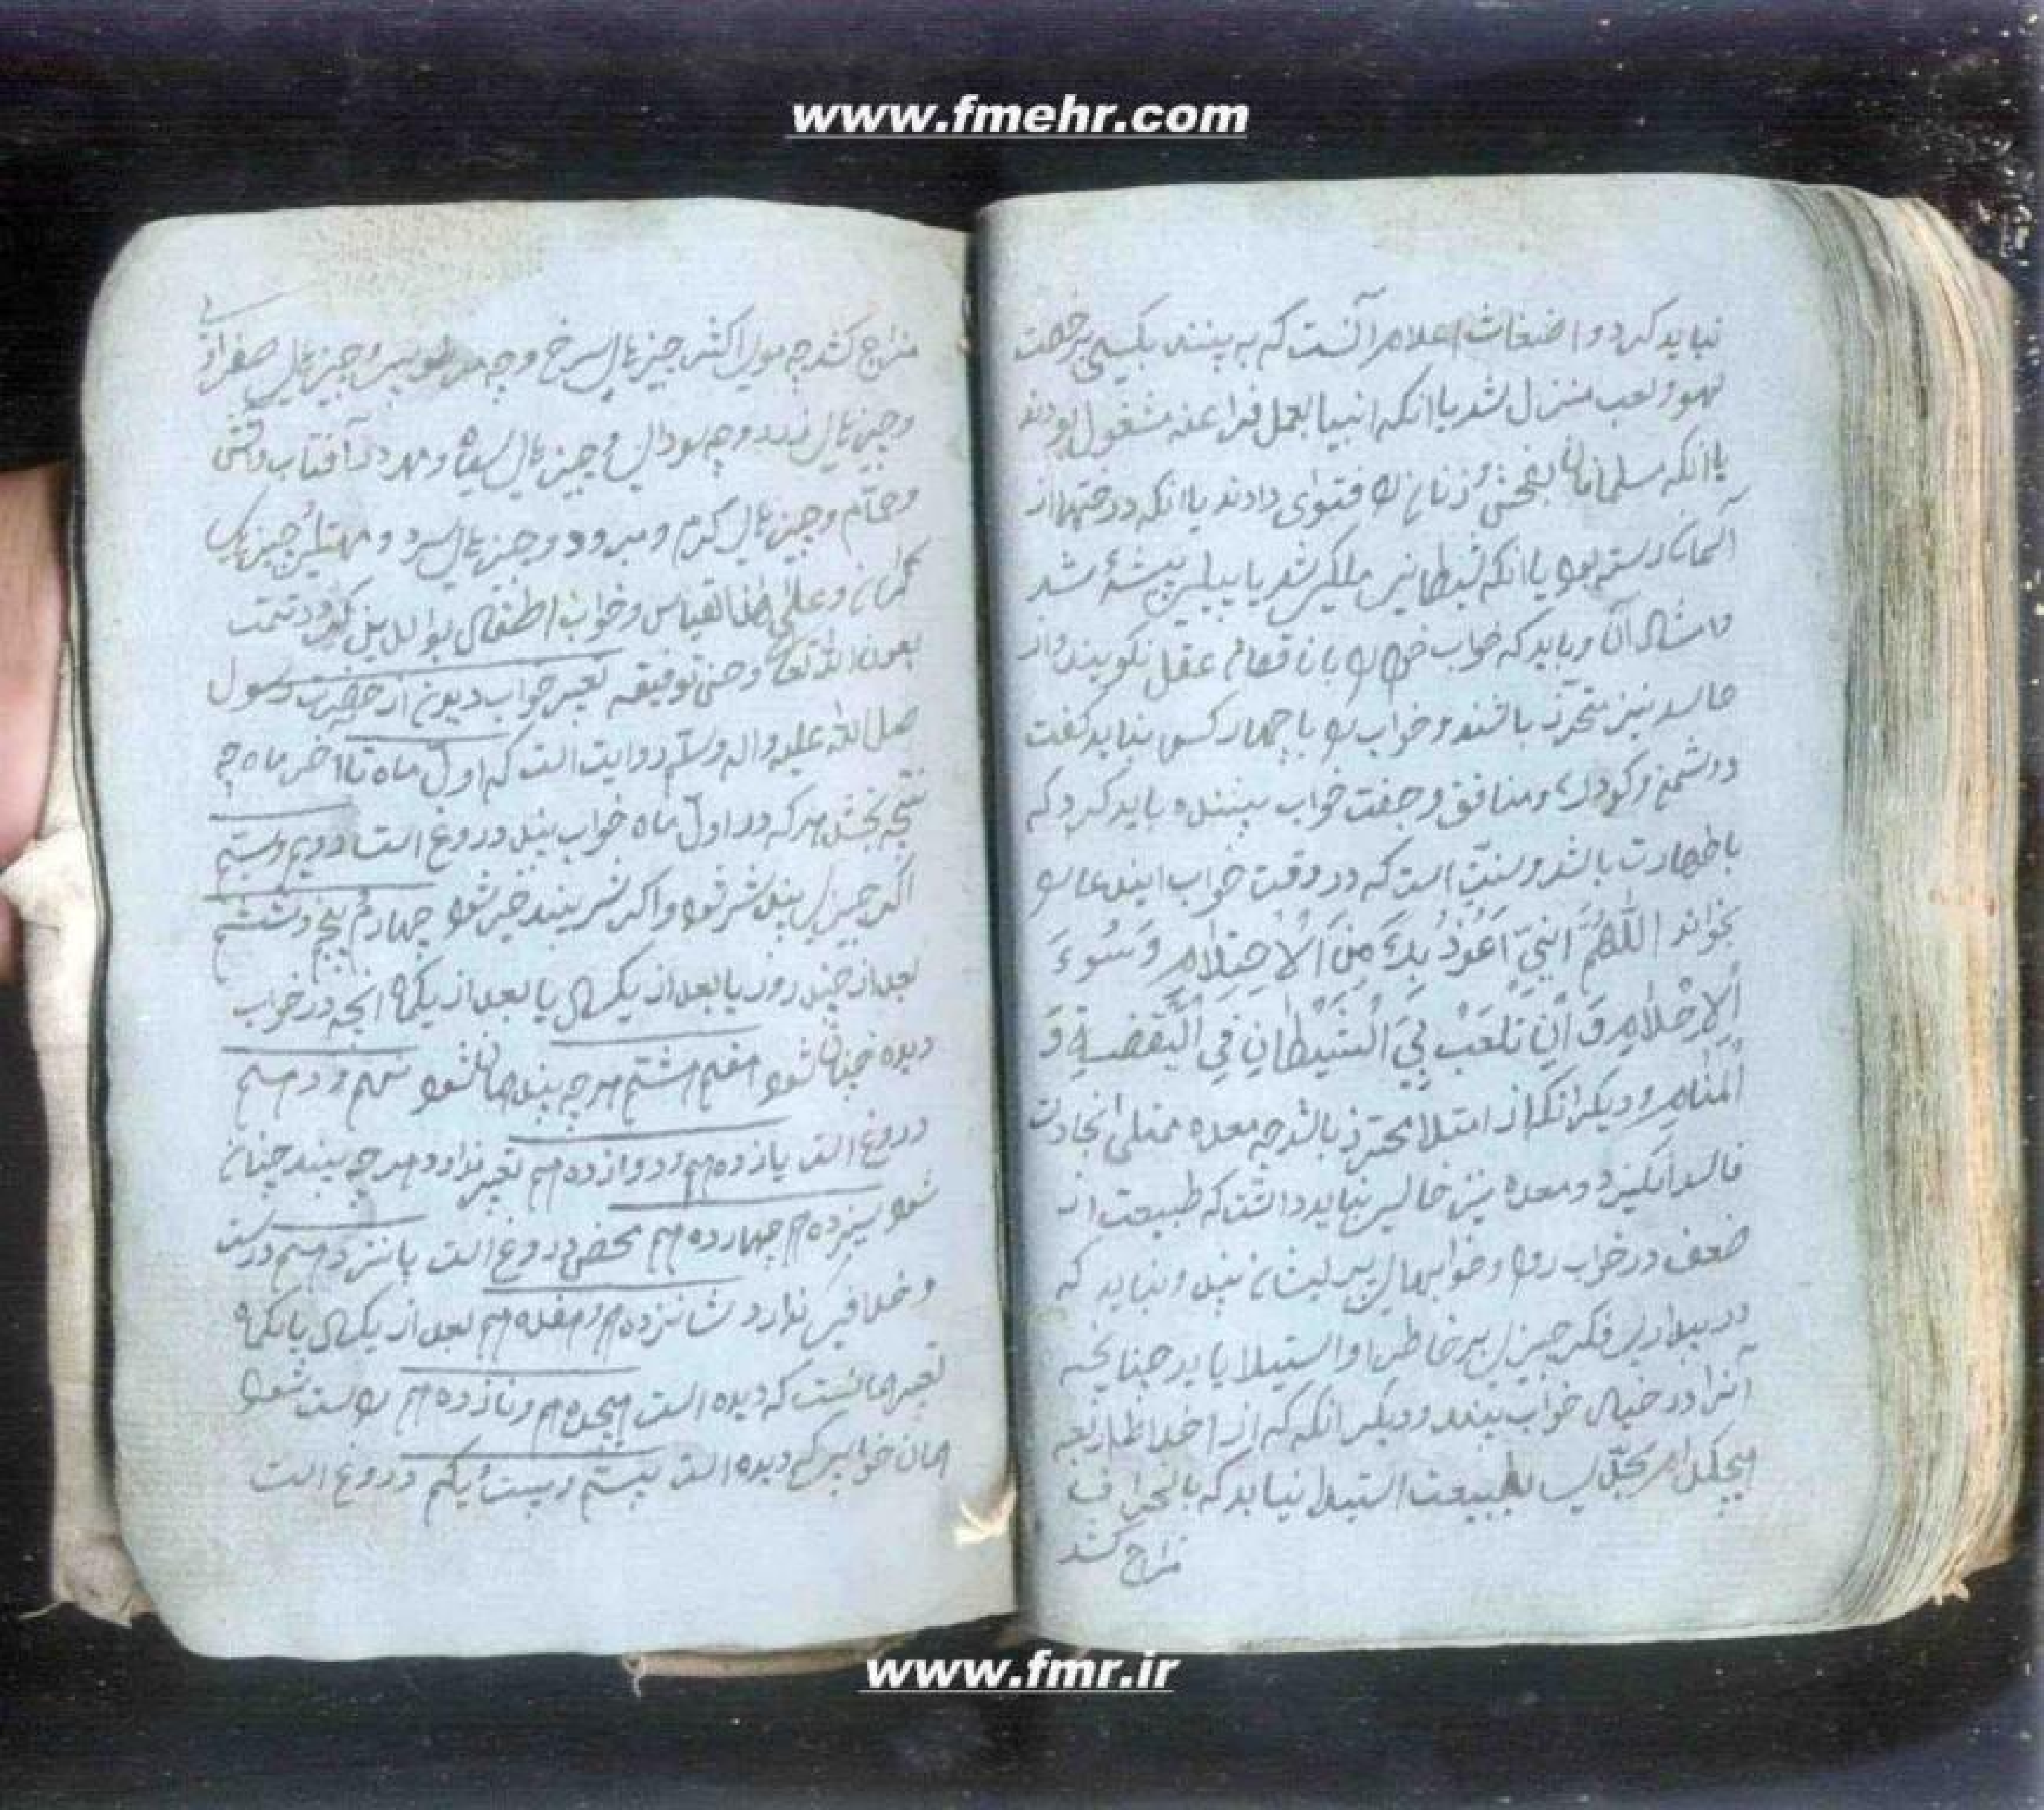 www.fmehr.com
نباید کرد و اضغاث اعلام آنست که به بینند یکسی بر خصت
لهو و لعب منزل شد یا انکه انبیا بعمل فراعنه مشغول بودند
یا انکه مسلمانان بفحش و زنا فتوای دادند یا انکه درختها از
آسمان رسته بود یا انکه شیطانی ملکی شد یا پیلی پیشهٔ شد
و امثال آن و باید که خواب خود را با ناقصان عقل نگویند و از
حاسد نیز متحرز باشند و خواب را با چهار کس نباید گفت
دشمن و کودک و منافق و جفت خواب بیننده باید کرد که
با طهارت باشد و سنت است که در وقت خواب این دعا را
بخواند اللّٰهُمَّ اِنّیِ اَعُوذُ بِکَ مِنَ الْاِحْتِلامِ وَ سُوءَ
الاِحْلامِ وَ اَنْ تَلْعَبْ بِیَ الشَّیْطانِ فِی الْیَقْضَةِ وَ
اَلْمَنٰامِ و دیگر انکه از امتلا محترز باشد چه معده ممتلی بخارات
فاسد انگیزد و معده نیز خالی نباید داشت که طبیعت از
ضعف در خواب رود و خوابهای پریشان بیند و نباید که
در بیداری فکر چیزی بر خاطر او استیلا یابد چنانچه
آنرا در خیال خواب بیند و دیگر انکه که از اخلاط اربعه
هیچکدام بطبیعت استیلا نیابد که بانحراف
مزاج کشد
مزاج کشد چه دموی اکثر چیزهای سرخ و چه مرطوبی و چیزهای صفراوی
و چیزهای زرد و چه سودای و چیزهای سیاه و در آفتاب و آتش
و حمام و چیزهای گرم و مبرود و چیزهای سرد و ممتلی چیزهای
گران و علی هذا القیاس و خواب اطفال بوالدین تمت
بعون الله تعالی و حسن توفیقه تعبیر خواب دیدن از حضرت رسول
صلی الله علیه و اله و سلم روایت است که اول ماه تا اخر ماه چه
نتیجه بخشد هر که در اول ماه خواب بیند دروغ است دویم و سیم
اگر چیزی بیند شر شود و اگر شر بیند خیر شود چهارم پنج و ششم
بعد از چند روز یا بعد از یکسال یا بعد از یکماه انچه در خواب
دیده چنان شود هفتم هشتم هر چه بیند همان شود نهم و دهم
دروغ است یازدهم و دوازدهم تعبیر ندارد هر چه بیند چنان
شود سیزدهم چهاردهم محض دروغ است پانزدهم درست
و خلافی ندارد شانزدهم و هفدهم بعد از یکسال یا یکماه
تعبیر همانست که دیده است هیجدهم و نازدهم راست شود
همان خوابی که دیده است بیستم و بیست و یکم دروغ است
www.fmr.ir